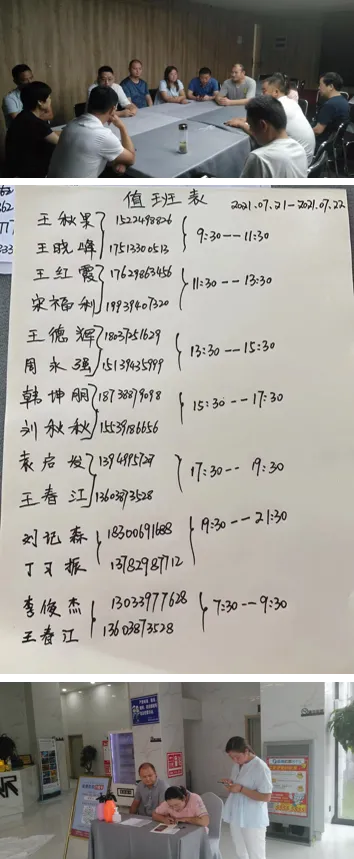 值班表 2021.07.21-2021.07.22
王秋果 15224498826
王晓峰 17513300513
9:30--11:30
王红霞 17629863456
宋福利 19939407320
11:30--13:30
王德辉 18037251629
周永强 15139435999
13:30--15:30
韩坤朋 18738879098
刘秋秋 15539186656
15:30--17:30
袁启发
王春江 13603873528
17:30-- 19:30
刘记森 18300691688
丁又振 13782987712
19:30--21:30
李俊杰 13033977628
王春江 13603873528
7:30--9:30